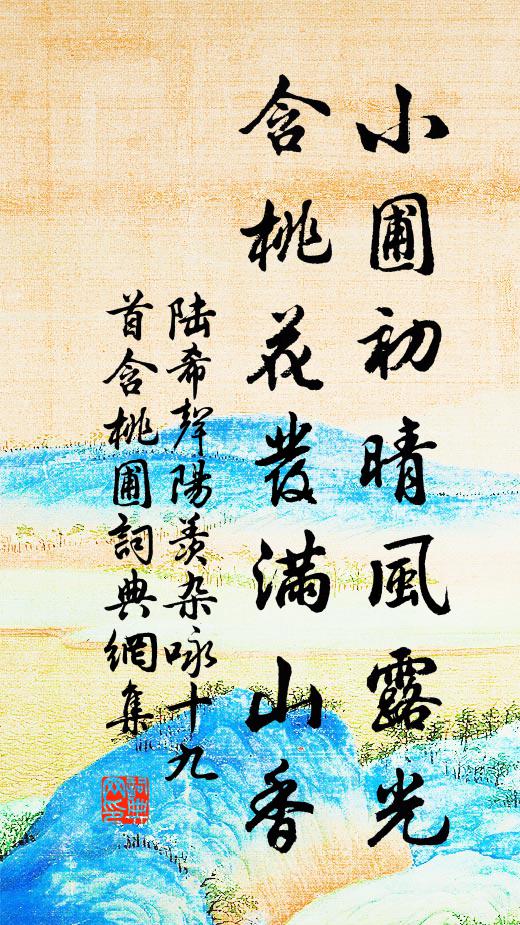 小圃初晴風露光
含桃花發滿山香
陸希聲陽羨杂咏十九
首含桃圃詞典網集